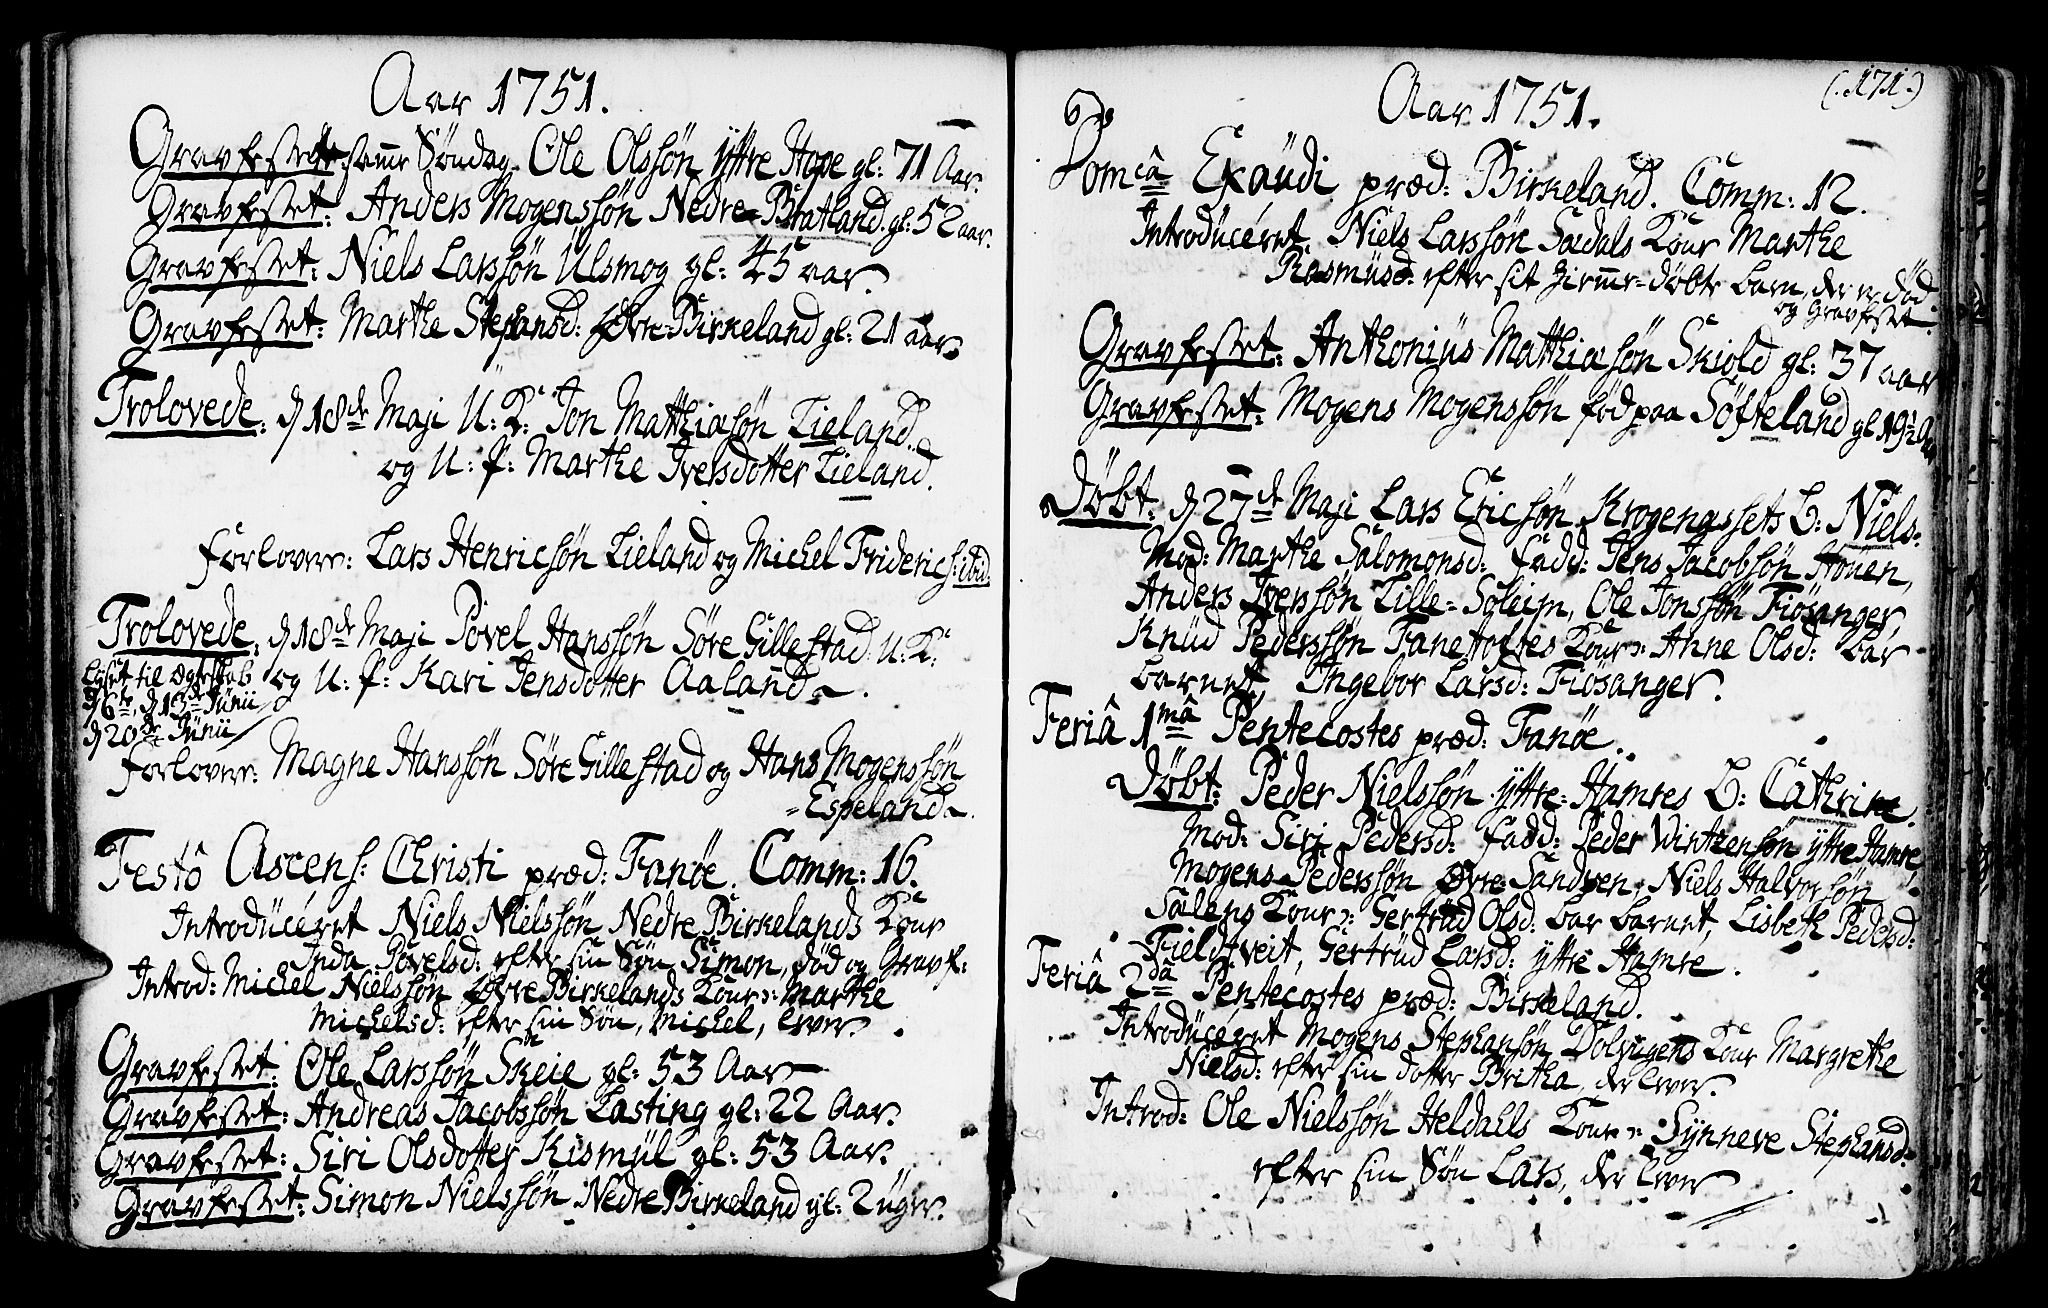 Aar 1751.
Gravfestet samme Søndag Ole Olssøn Yttre Hope gl: 71 Aar.
Gravfestet: Anders Mogenssøn Nedre-Bratland gl: 52 aar.
Gravfestet: Niels Larssøn Ulsmog gl: 45 aar.
Gravfestet: Marthe Stephansd: Øvre-Birkeland gl: 21 aar
Trolovede: d 18de Maji U: K: Jon Mathiasøn Lieland.
og U: P: Marthe Iversdotter Lieland.
Forlovere: Lars Henricsøn Lieland og Michel Friderichs: ibid
Trolovede: d 18de Maji Povel Hanssøn Søre Gillestad U: K:
og U: P: Kari Jensdotter Aaland.
Lyset til Ægteskab
d 6te, d 13de Junii
d 20de Junii
Forlovere: Magne Hanssøn Søre Gillestad og Hans Mogenssøn
Espeland.
Festô Ascens: Christi præd: Fanøe. Comm: 16.
Introducéret Niels Nielssøn Nedre Birkelands Kone
Inda Povelsd: efter sin Søn Simon, død og Gravf:
Introd: Michel Nielssøn Øvre Birkelands Kone: Marthe
Michelsd: efter sin Søn, Michel, lever.
Gravfestet: Ole Larssøn Skeie gl: 53 Aar
Gravfestet: Andreas Jacobssøn Lasting gl: 22 Aar.
Gravfestet: Siri Olsdotter Kismul gl: 53 Aar.
Gravfestet: Simon Nielssøn Nedre Birkeland gl: 2 uger.
Aar 1751.
(171.)
Domcâ Exaudi præd: Birkeland. Comm: 12.
Introducéret Niels Larssøn Sædals Kone Marthe
Rasmusd: efter sit hiemme-døbte barn, der er død
og Gravfestet.
Gravfestet: Anthonius Mathiasøn Skiold gl: 37 aar
Gravfestet: Mogens Mogenssøn fød paa Søfteland gl 19½ Aar
Døbt: d 27de Maji Lars Ericsøn Krogengssets B: Niels:
Mod: Marthe Salomonsd: Fadd: Jens Jacobsøn Houen,
Anders Iverssøn Lille-Soleim, Ole Jonssøn Fiøsanger,
Knud Pederssøn Fanetoftes Kone: Anne Olsd: bar
barnet, Ingebor Larsd: Fiøsanger.
Feriâ 1mâ Pentecostes præd: Fanøe.
Døbt: Peder Nielssøn yttre-Hamres B: Cathrine.
Mod: Siri Pedersd: Fadd: Peder Vintzensøn yttre Hamre,
Mogens Pederssøn Øvre-Sandven, Niels Halvorsøn
Sälens Kone: Gertrud Olsd: bar barnet, Lisbeth Pedersd:
Fieldtveit, Gertrud Larsd: yttre Hamre.
Feriâ 2dâ Pentecostes præd: Birkeland.
Introducéret Mogens Stephansøn Dolvigens Kone Margrethe
Nielsd: efter sin dotter Britha, der lever.
Introd: Ole Nielssøn Heldahls Kone: Synneve Stephansd:
efter sin Søn Lars, der lever